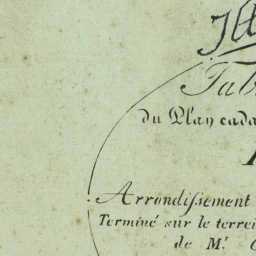 Tab
du Plan cada
Arrondissement
Terminé sur le terrei
de Mr.